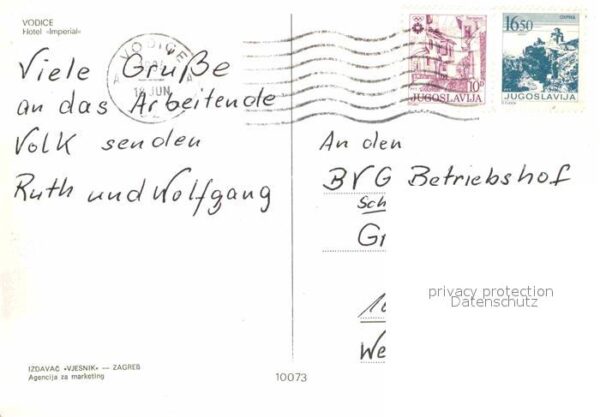 VODICE
Hotel »Imperial«
VODICE
18 JUN
10
JUGOSLAVIJA
16.50
JUGOSLAVIJA
Viele Gruße
an das Arbeitende
Volk senden
Ruth und Wolfgang
An den
BVG Betriebshof
Sch
Gr
10
We
privacy protection
Datenschutz
IZDAVAČ »VJESNIK« — ZAGREB
Agencija za marketing
10073